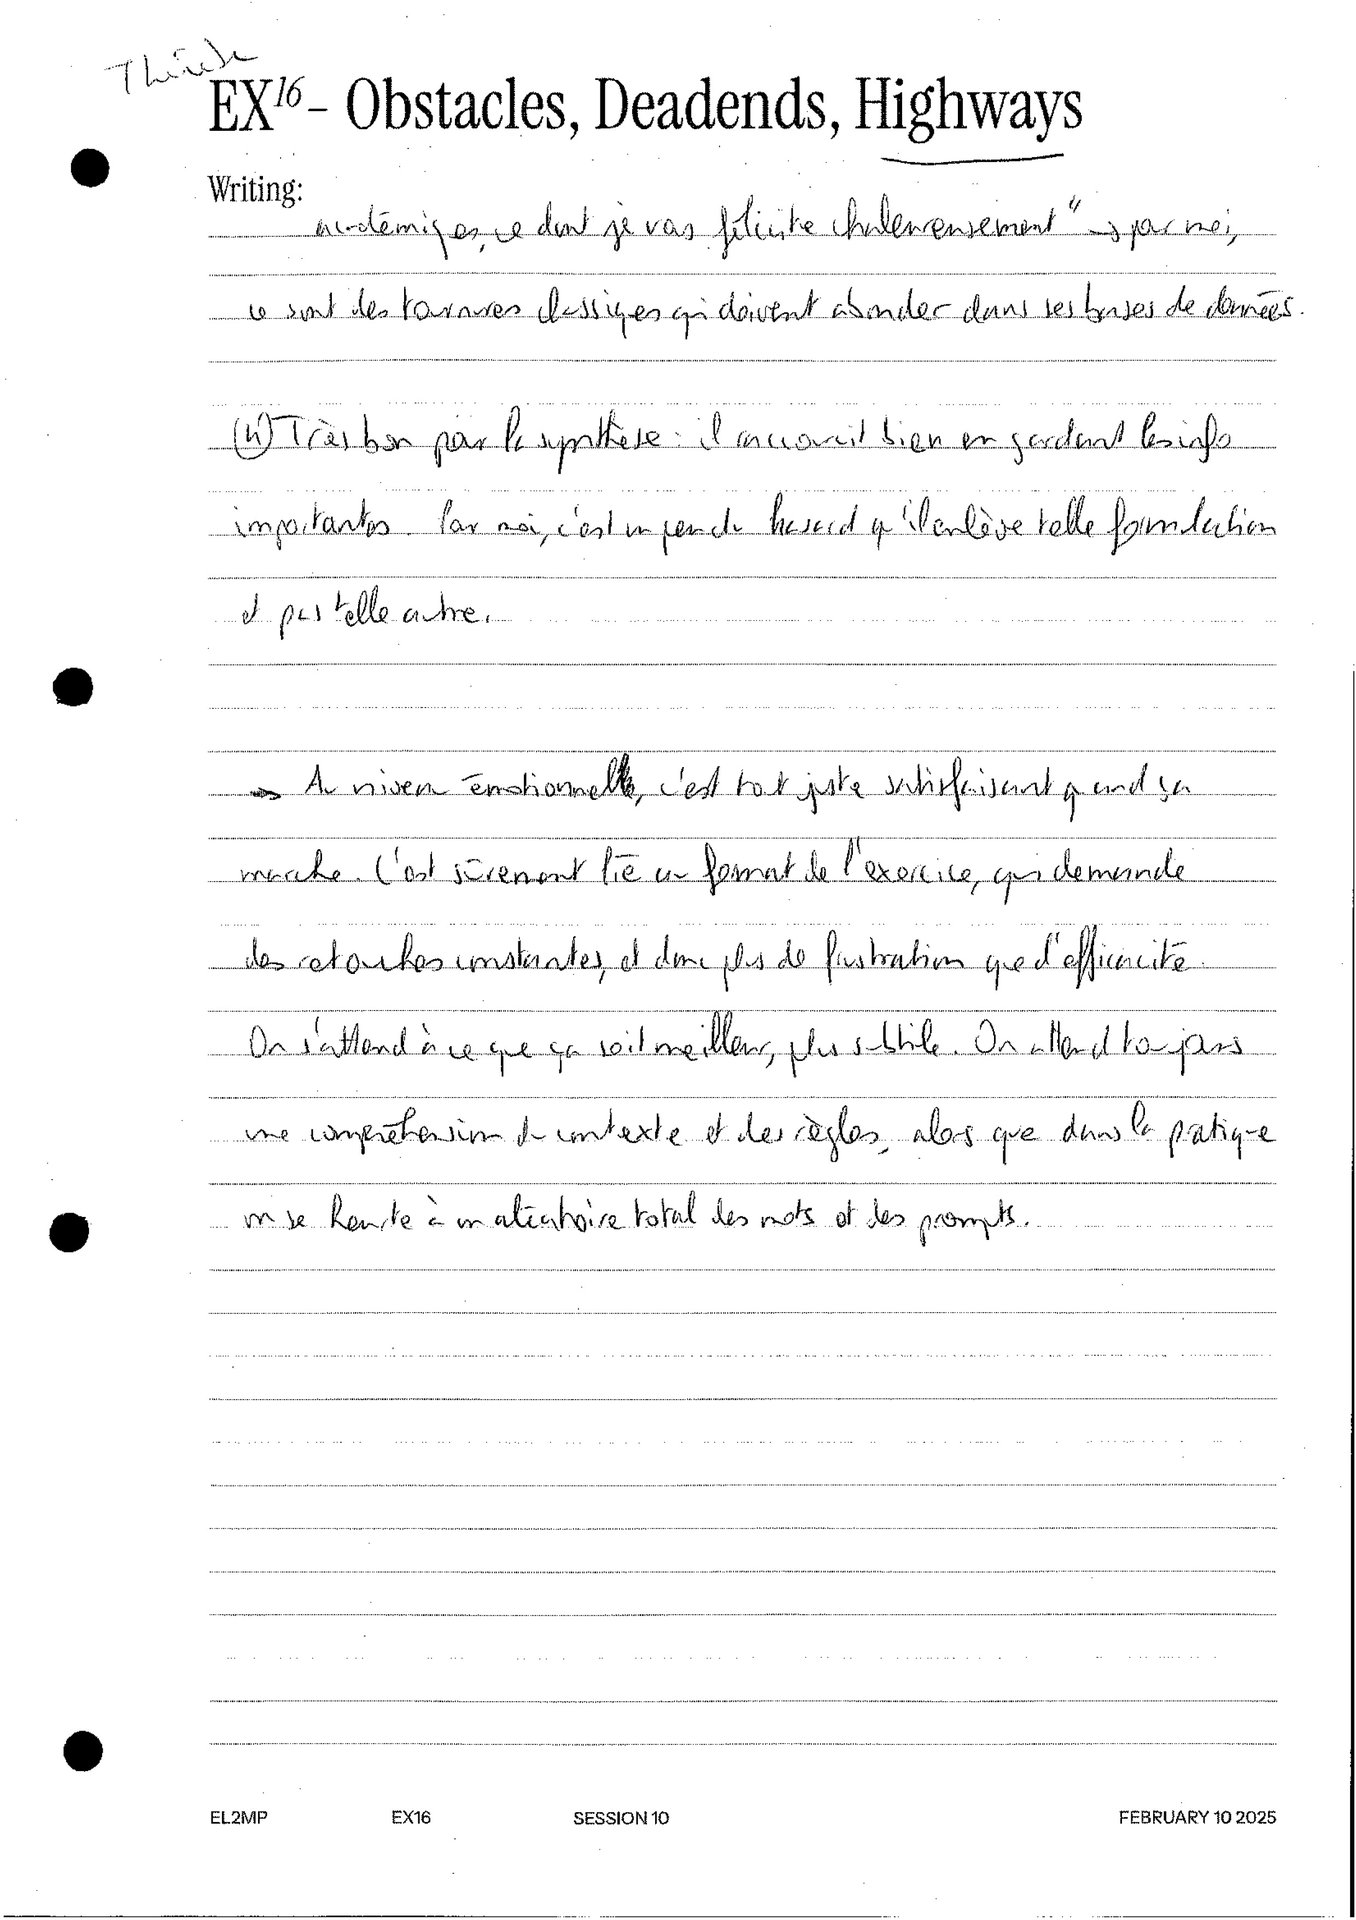 Thérèse
EX16 – Obstacles, Deadends, Highways
Writing:
académiques, ce dont je vous félicite chaleureusement" → pour moi,
ce sont des tournures classiques qui doivent abonder dans ses bases de données.
(4) Très bon pour la synthèse : il raccourcit bien en gardant les info
importantes. Pour moi, c'est un peu du hasard qu'il enlève telle formulation
et pas telle autre.
→ Au niveau émotionnel, c'est tout juste satisfaisant quand ça
marche. C'est sûrement lié au format de l'exercice, qui demande
des retouches constantes, et donc plus de frustration que d'efficacité.
On s'attend à ce que ça soit meilleur, plus subtile. On attend toujours
une compréhension du contexte et des règles, alors que dans la pratique
on se heurte à un aléatoire total des mots et des prompts.
EL2MP EX16 SESSION 10 FEBRUARY 10 2025